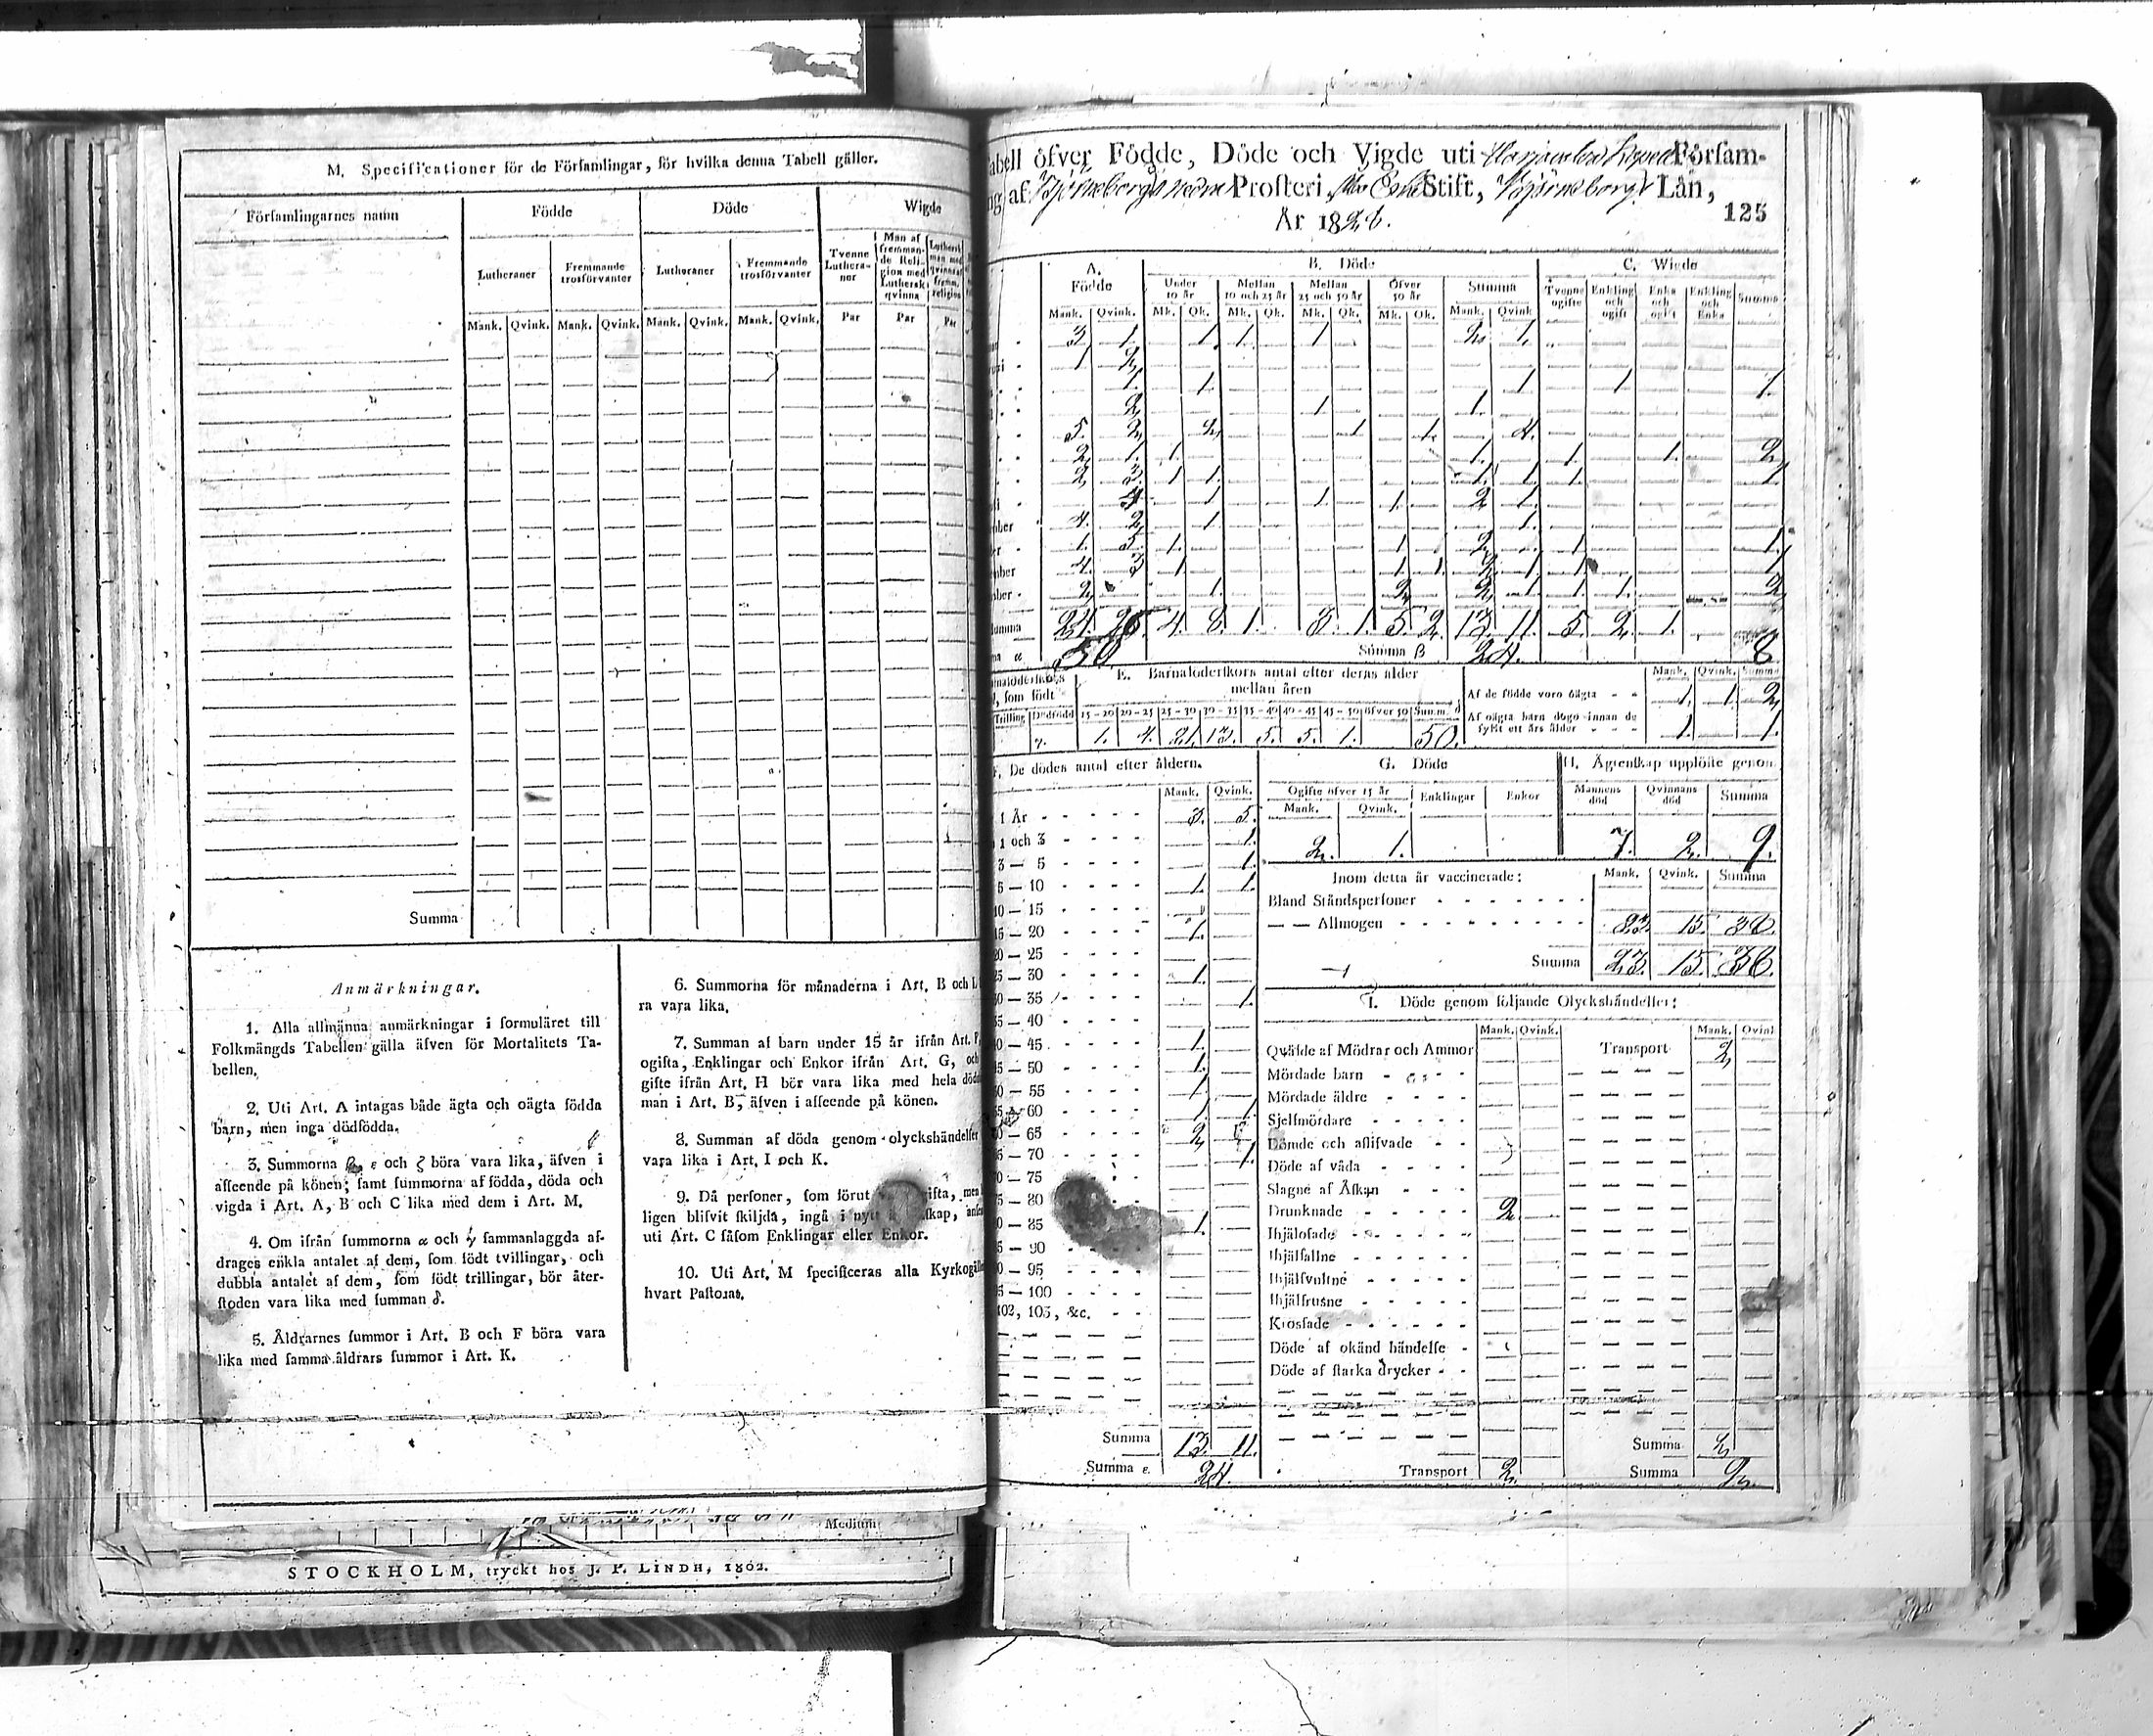 M. Specificationer för de Församlingar, för hvilka denna Tabell gäller.
Församlingarnes namn Födde Döde Wigde
Lutheraner Fremmande trosförvanter Lutheraner Fremmande trosförvanter Tvenne Lutheraner Man af fremmande Religion med Luthersk qvinna Luthersk man med qvinna af fremm. religion
Mank. Qvink. Mank. Qvink. Mank. Qvink. Mank. Qvink. Par Par Par
Summa
Anmärkningar.
1. Alla allmänna anmärkningar i formuläret till
Folkmängds Tabellen gälla äfven för Mortalitets Ta-
bellen.
2. Uti Art. A intagas både ägta och oägta födda
barn, men inga dödfödda.
3. Summorna β, ε och ζ böra vara lika, äfven i
afseende på könen; samt summorna af födda, döda och
vigda i Art. A, B och C lika med dem i Art. M.
4. Om ifrån summorna α och γ sammanlaggda af-
drages enkla antalet af dem, som födt tvillingar, och
dubbla antalet af dem, som födt trillingar, bör åter-
stoden vara lika med summan δ.
5. Åldrarnes summor i Art. B och F böra vara
lika med samma åldrars summor i Art. K.
6. Summorna för månaderna i Art. B och L
ra vara lika.
7. Summan af barn under 15 år ifrån Art. F,
ogifta, Enklingar och Enkor ifrån Art. G, och
gifte ifrån Art. H bör vara lika med hela döds
man i Art. B, äfven i afseende på könen.
8. Summan af döda genom olyckshändelser
vara lika i Art. I och K.
9. Då personer, som förut ifta, men
ligen blifvit skiljda, ingå i nytt skap, anse
uti Art. C såsom Enklingar eller Enkor.
10. Uti Art. M specificeras alla Kyrkogäll
hvart Pastorat.
Medium
STOCKHOLM, tryckt hos J. P. LINDH, 1802.
abell öfver Födde, Döde och Vigde uti Församl-
ng af Björneborgs nedre Prosteri, Stift, Björneborgs Län,
År 1826.
125
A. Födde B. Döde C. Wigde
Under 10 år Mellan 10 och 25 år Mellan 25 och 50 år Öfver 50 år Summa Tvenne ogifte Enkling och ogift Enka och ogift Enkling och Enka Summa
Mank. Qvink. Mk. Qk. Mk. Qk. Mk. Qk. Mk. Qk. Mank. Qvink
3 1. 1 1. 1 2. 1.
1 2.
1. 1. 1 1 1.
2 1. 1.
5. 2. 2. 1 1. 4.
2. 1. 1. 1. 1. 1. 2
2 3. 1 1. 1. 1. 1. 1.
4 1 1. 1. 2 1.
mber 4. 2. 1 1.
er 1. 5. 1. 1 2. 1 1.
ember 4. 3 1 1. 1. 2. 1 1 1
mber 2 1. 2. 2. 1 1. 1. 2
Summa 24. 26. 4. 8. 1. 3. 1. 5. 2. 13. 11. 5. 2. 1. 8
α 50 Summa β 24.
som födt E. Barnaföderskors antal efter deras ålder
mellan åren
Trilling Dödfödd 15-20 20-25 25-30 30-35 35-40 40-45 45-50 öfver 50 Summ. δ
1. 4. 21. 13. 5. 5. 1. 50.
Mank. Qvink. Summa
Af de födde voro oägta 1. 1. 2
Af oägta barn dogo innan de
fyllt ett års ålder 1. 1.
F. De dödes antal efter åldern.
Mank. Qvink.
1 År 3. 5.
1 och 3 1.
3 — 5 1.
5 — 10 1. 1.
10 — 15
15 — 20 1.
20 — 25
25 — 30 1.
30 — 35 1.
35 — 40
40 — 45 1.
45 — 50 1.
50 — 55 1.
55 — 60 1. 1.
60 — 65 2
65 — 70 1.
70 — 75
75 — 80
80 — 85 1.
85 — 90
90 — 95
95 — 100
102, 103, &c.
Summa 13. 11.
Summa ε. 24.
G. Döde
Ogifte öfver 15 år Enklingar Enkor
Mank. Qvink.
2. 1.
H. Ägtenskap upplöste genom
Mannens död Qvinnans död Summa
7. 2. 9.
Inom detta år vaccinerade: Mank. Qvink. Summa
Bland Ståndspersoner
— — Allmogen 23. 15. 38.
Summa 23. 15. 38.
I. Döde genom följande Olyckshändelser:
Mank. Qvink. Mank. Qvink
Qväfde af Mödrar och Ammor Transport 2
Mördade barn
Mördade äldre
Sjelfmördare
Dömde och aflifvade
Döde af våda
Slagne af Åskan
Drunknade 2.
Ihjälosade
Ihjälfallne
Ihjälsvultne
Ihjälfrusne
Krossade
Döde af okänd händelse
Döde af starka drycker
Summa 2
Transport 2. Summa 2.